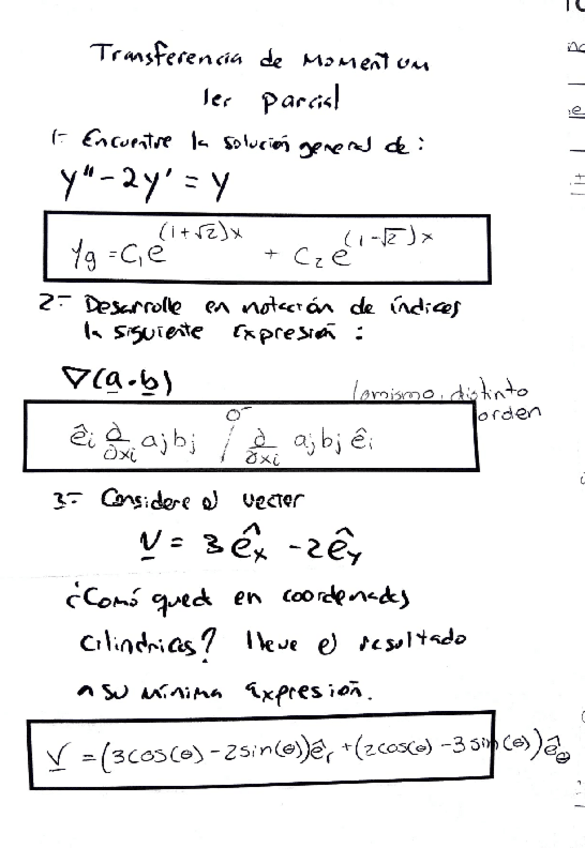 Transferencia de Momentum
1er parcial
1- Encuentre la solución general de:
y'' - 2y' = y
yg = C₁e^(1+√2)x + C₂e^(1-√2)x
2- Desarrolle en notación de índices
la siguiente expresión:
∇(a·b)
lo mismo, distinto
orden
êᵢ ∂/∂xᵢ aⱼbⱼ / ∂/∂xᵢ aⱼbⱼ êᵢ
3- Considere el vector
V = 3êₓ - 2êᵧ
¿Comó queda en coordenadas
cilindricas? lleve el resultado
a su mínima expresión.
V = (3cos(θ) - 2sin(θ))êᵣ + (2cos(θ) - 3sin(θ))ê_θ